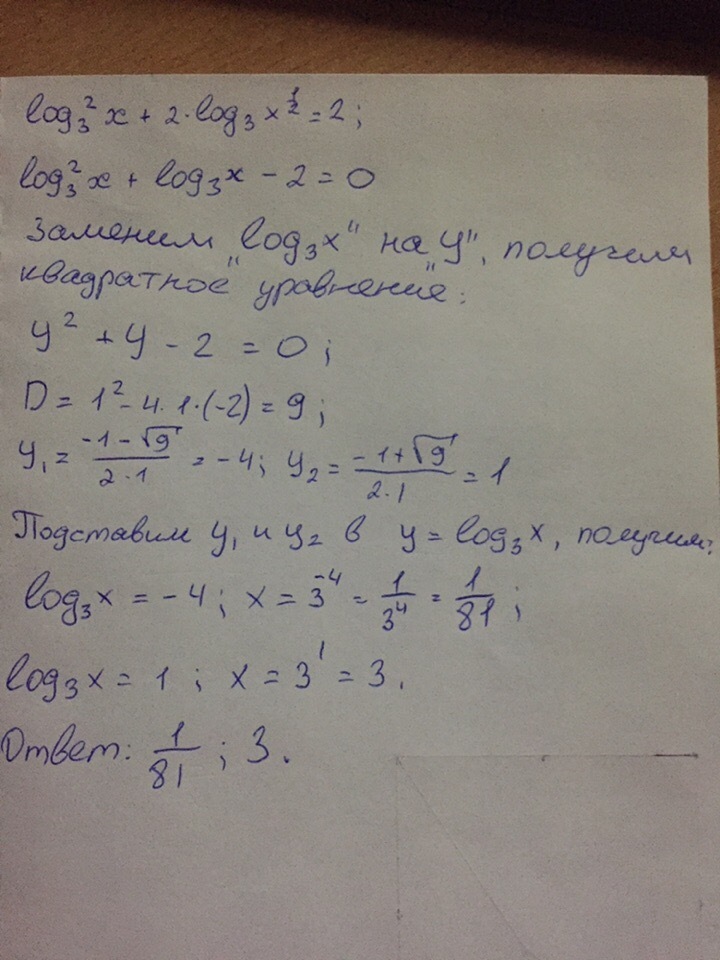 log₃²x + 2·log₃x^½ = 2;
log₃²x + log₃x − 2 = 0
Заменим „log₃x" на „y", получим
квадратное уравнение:
y² + y − 2 = 0;
D = 1² − 4·1·(−2) = 9;
y₁ = (−1−√9)/(2·1) = −4; y₂ = (−1+√9)/(2·1) = 1
Подставим y₁ и y₂ в y = log₃x, получим:
log₃x = −4; x = 3⁻⁴ = 1/3⁴ = 1/81;
log₃x = 1; x = 3¹ = 3.
Ответ: 1/81; 3.